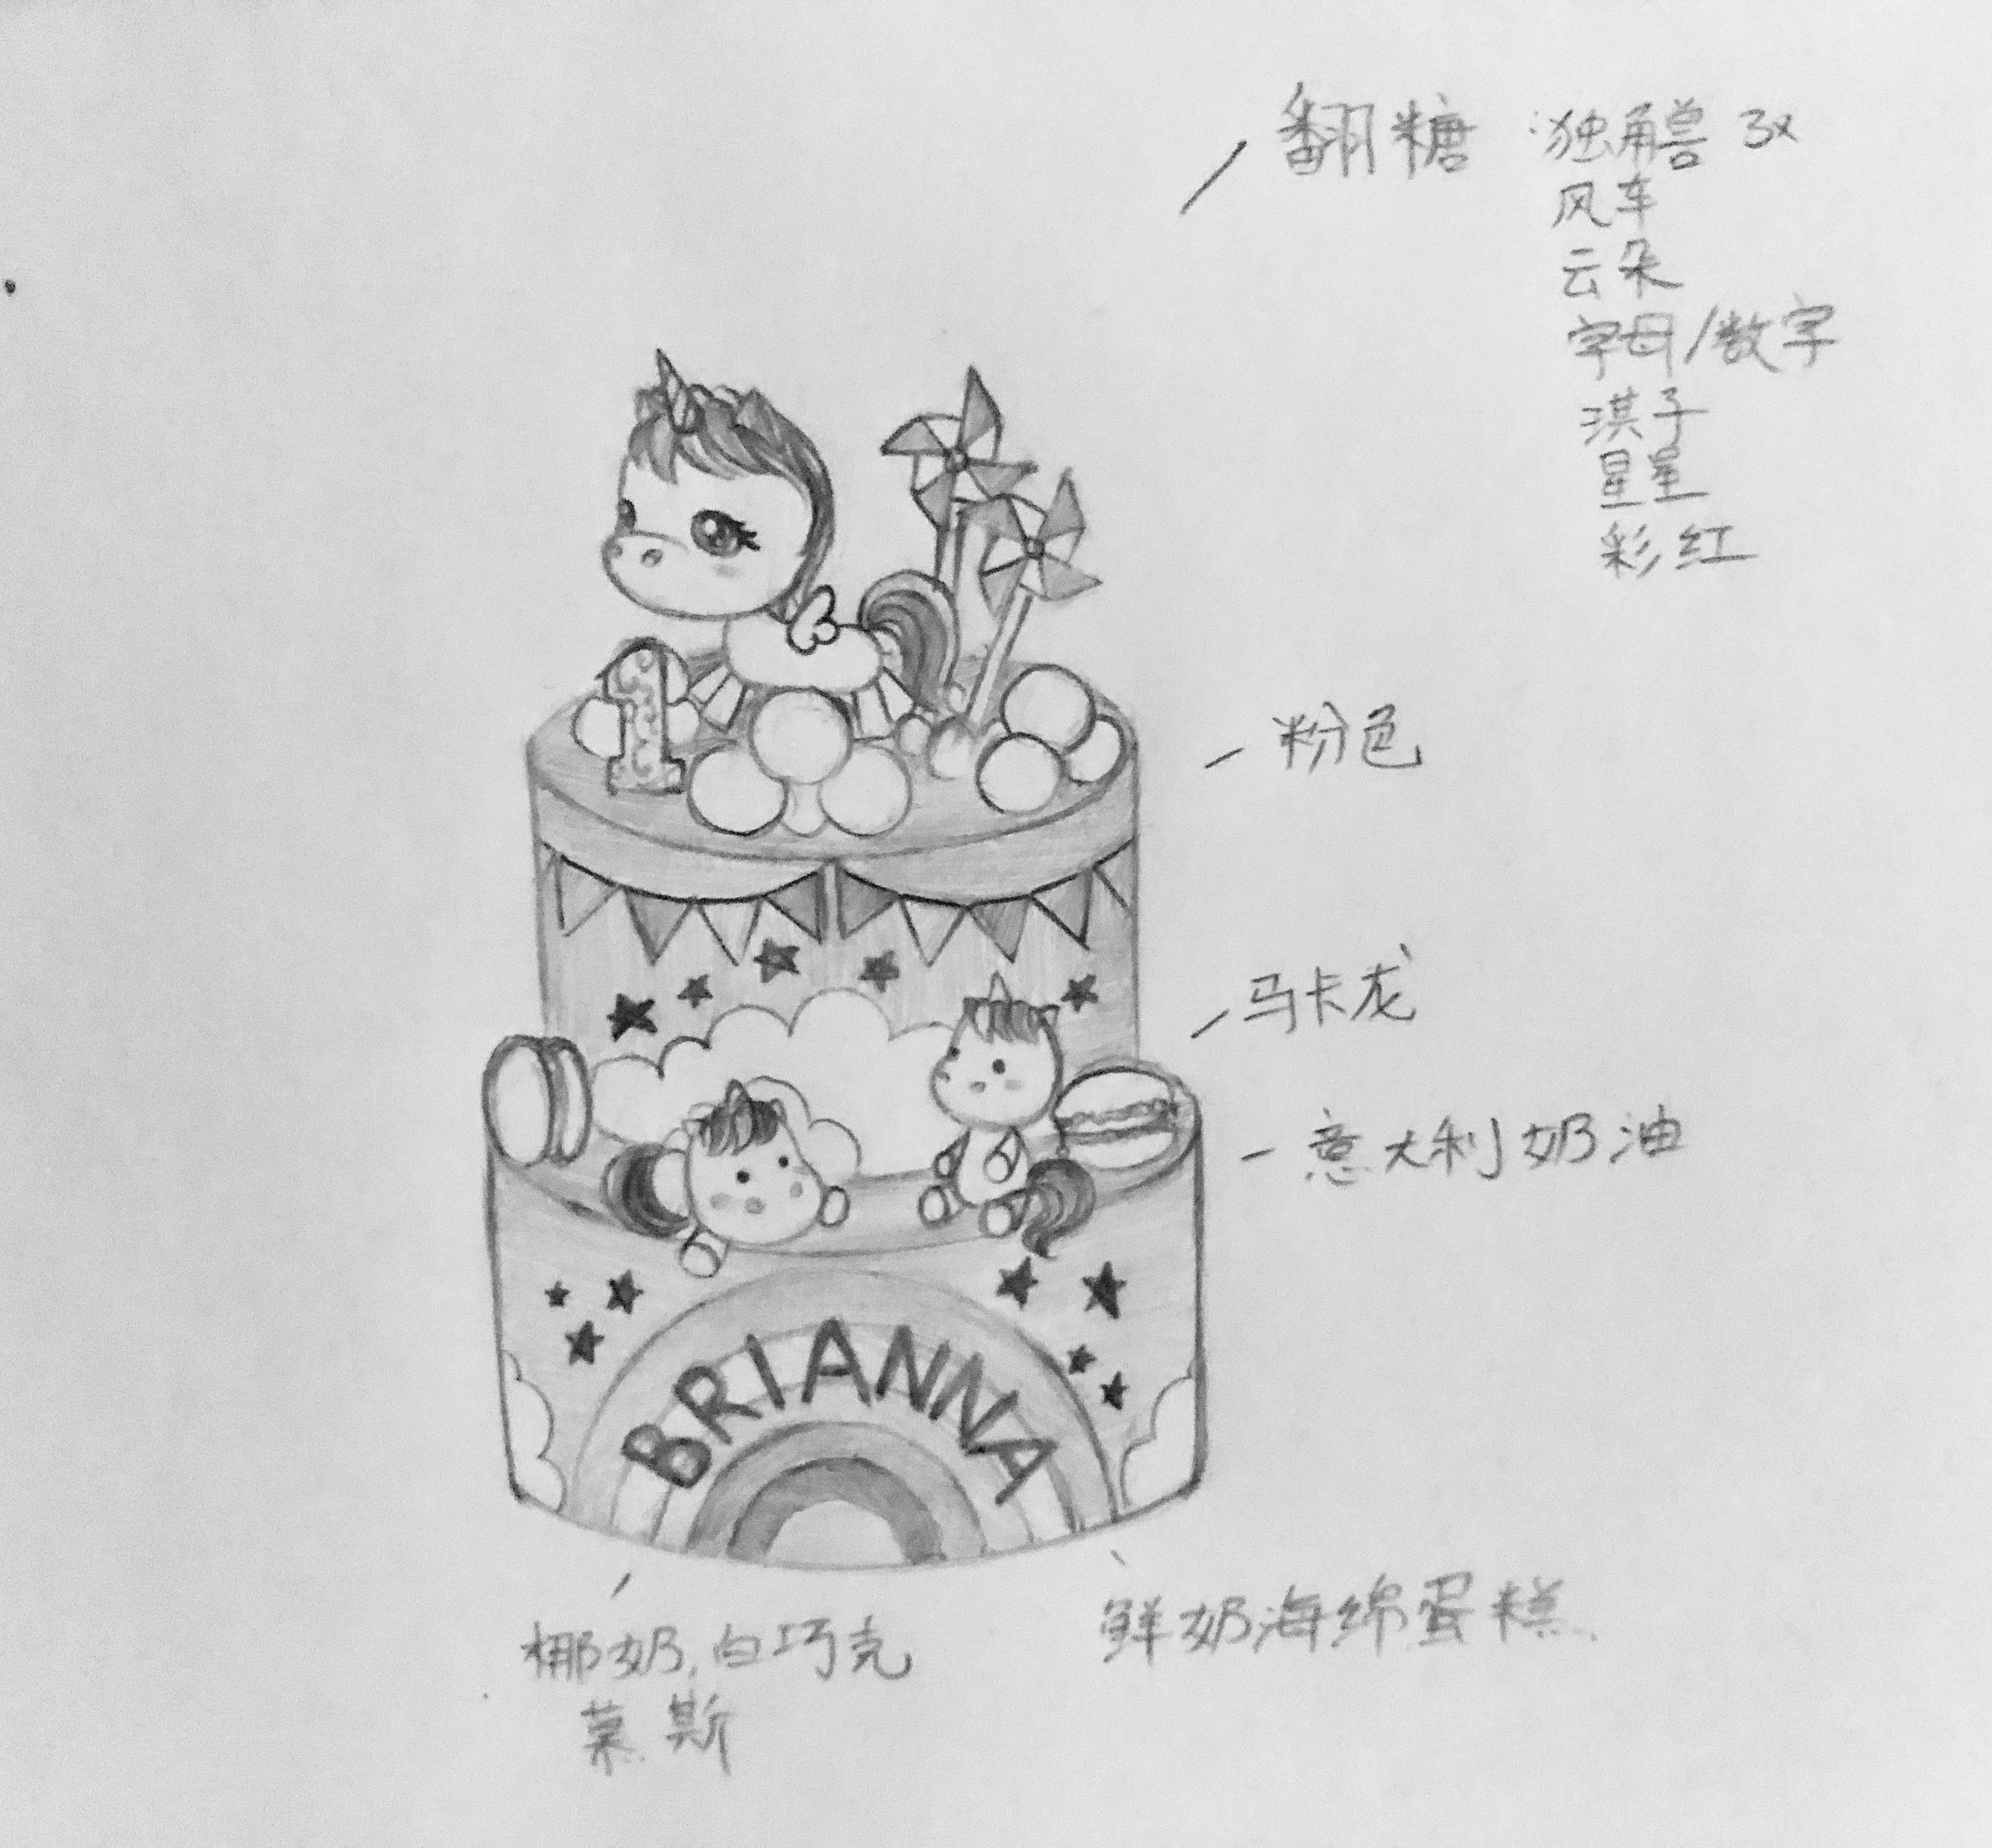 翻糖 独角兽 3x
风车
云朵
字母/数字
淇子
星星
彩红
1
粉色
马卡龙
意大利奶油
BRIANNA
椰奶,白巧克
慕斯
鲜奶海绵蛋糕